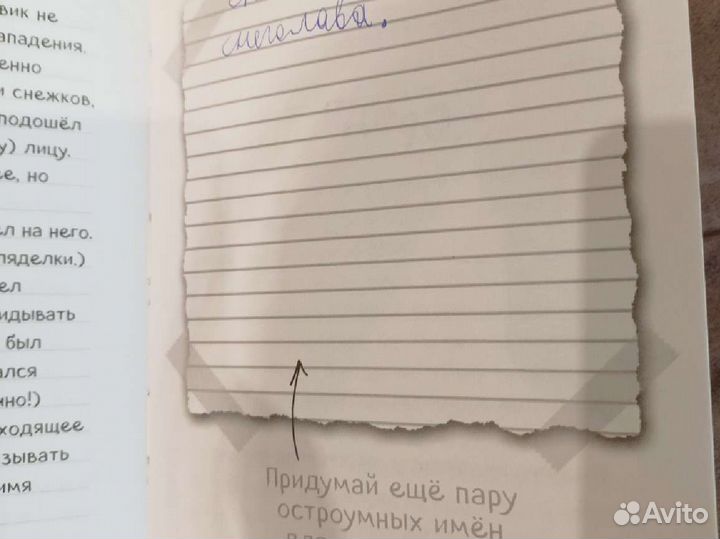 вик не
ападения.
енно
и снежков,
подошёл
у) лицу.
е, но
л на него.
ляделки.)
ел
идывать
был
ался
но!)
ходящее
зывать
имя
снеголава.
Придумай ещё пару
остроумных имён
Avito